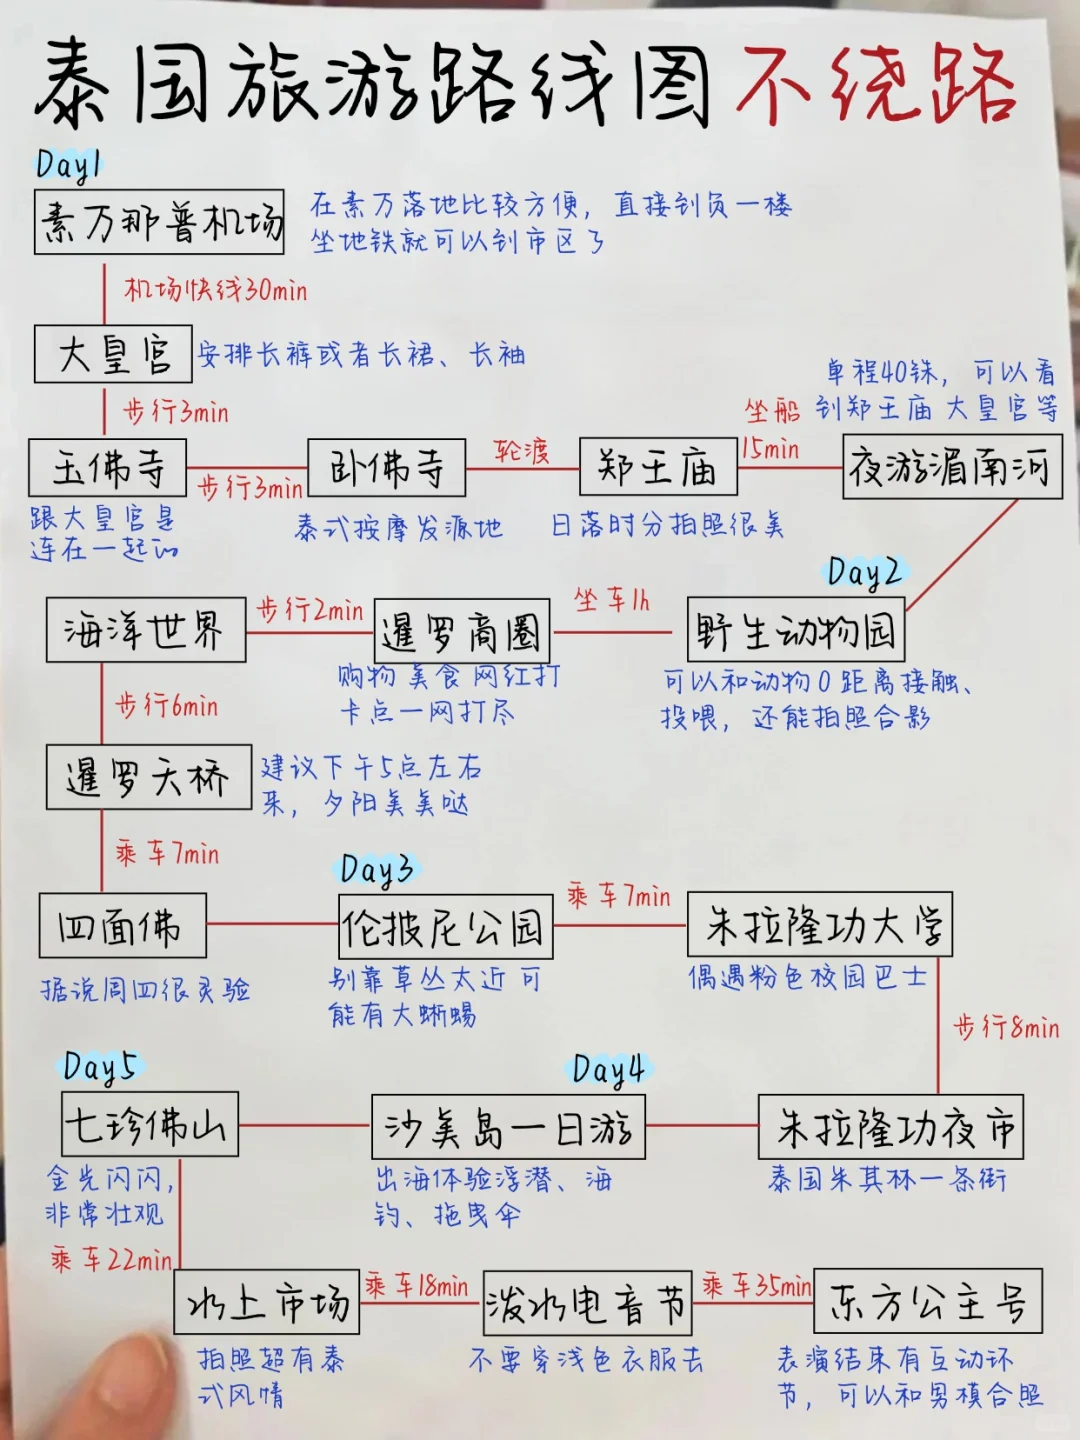 泰国旅游路线图 不绕路
Day1
素万那普机场
在素万落地比较方便，直接到负一楼
坐地铁就可以到市区了
机场快线30min
大皇宫
安排长裤或者长裙、长袖
步行3min
玉佛寺
跟大皇宫是
连在一起的
步行3min
卧佛寺
泰式按摩发源地
轮渡
郑王庙
日落时分拍照很美
坐船
15min
单程40铢，可以看
到郑王庙 大皇宫等
夜游湄南河
Day2
野生动物园
可以和动物0距离接触、
投喂，还能拍照合影
坐车1h
暹罗商圈
购物 美食 网红打
卡点一网打尽
步行2min
海洋世界
步行6min
暹罗天桥
建议下午5点左右
来，夕阳美美哒
乘车7min
四面佛
据说周四很灵验
Day3
伦披尼公园
别靠草丛太近 可
能有大蜥蜴
乘车7min
朱拉隆功大学
偶遇粉色校园巴士
步行8min
朱拉隆功夜市
泰国米其林一条街
Day4
沙美岛一日游
出海体验浮潜、海
钓、拖曳伞
Day5
七珍佛山
金光闪闪，
非常壮观
乘车22min
水上市场
拍照超有泰
式风情
乘车18min
泼水电音节
不要穿浅色衣服去
乘车35min
东方公主号
表演结束有互动环
节，可以和男模合照